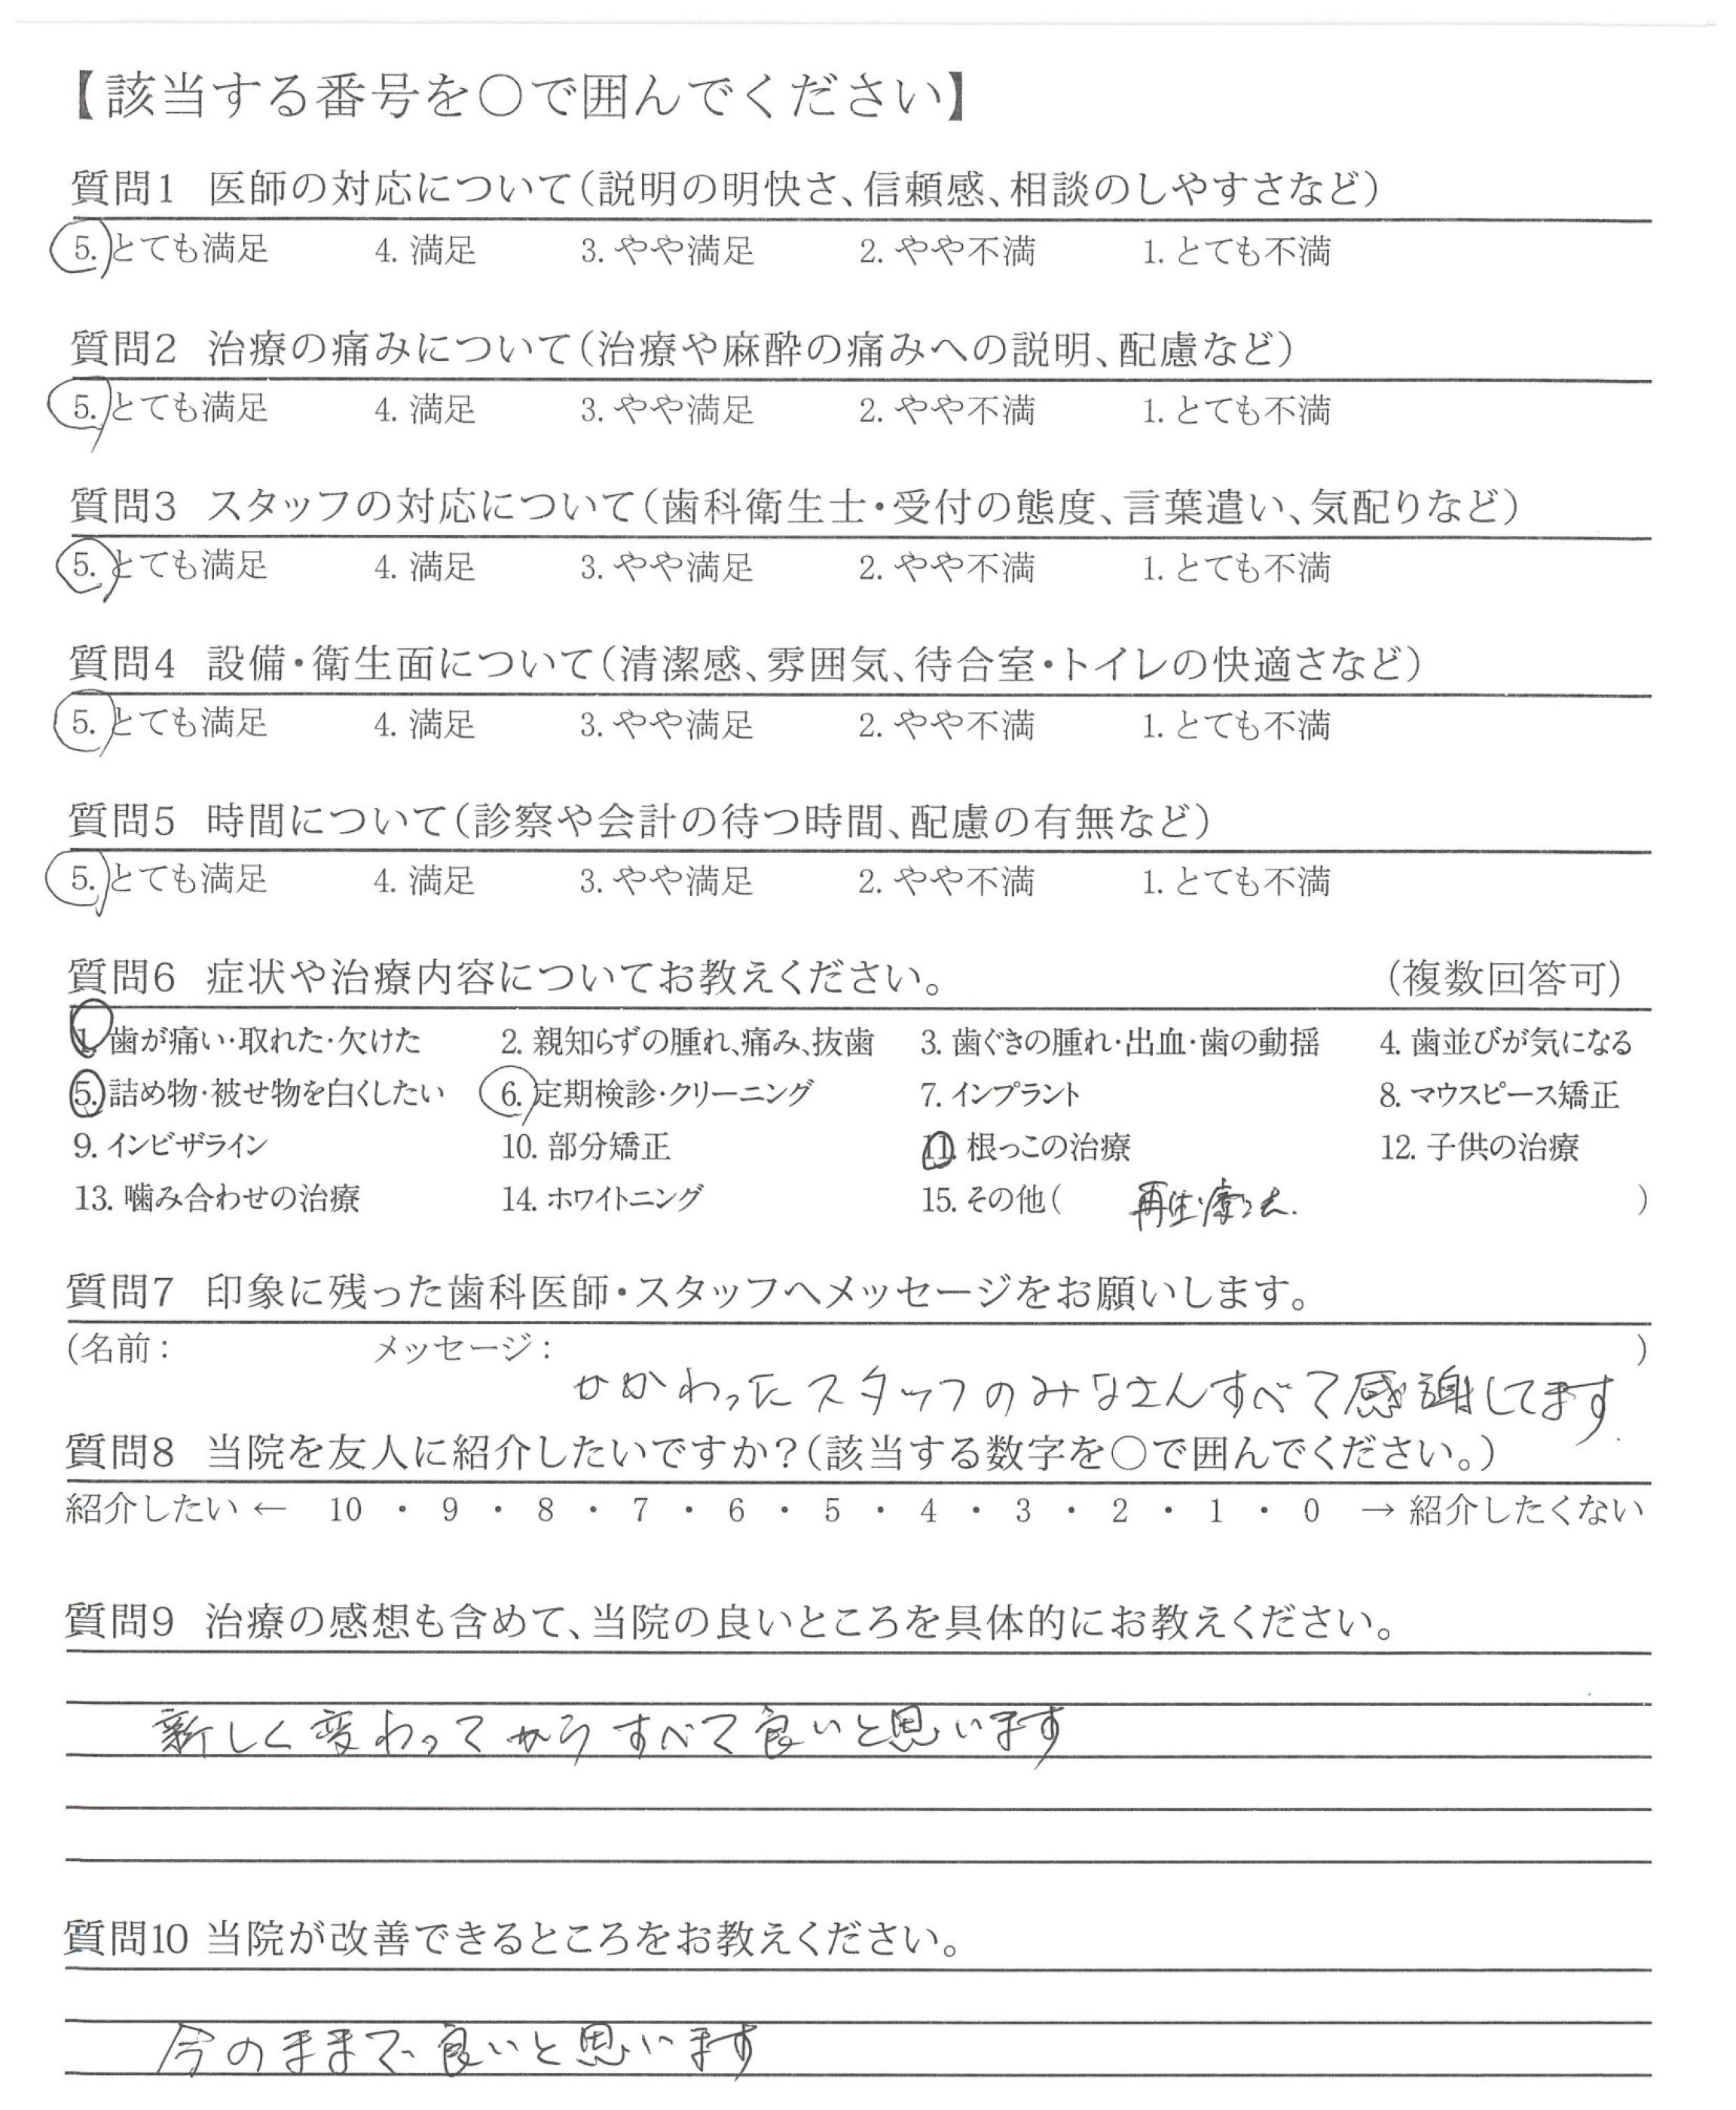 【該当する番号を〇で囲んでください】
質問1 医師の対応について(説明の明快さ、信頼感、相談のしやすさなど)
5. とても満足 4. 満足 3. やや満足 2. やや不満 1. とても不満
質問2 治療の痛みについて(治療や麻酔の痛みへの説明、配慮など)
5. とても満足 4. 満足 3. やや満足 2. やや不満 1. とても不満
質問3 スタッフの対応について(歯科衛生士・受付の態度、言葉遣い、気配りなど)
5. とても満足 4. 満足 3. やや満足 2. やや不満 1. とても不満
質問4 設備・衛生面について(清潔感、雰囲気、待合室・トイレの快適さなど)
5. とても満足 4. 満足 3. やや満足 2. やや不満 1. とても不満
質問5 時間について(診察や会計の待つ時間、配慮の有無など)
5. とても満足 4. 満足 3. やや満足 2. やや不満 1. とても不満
質問6 症状や治療内容についてお教えください。 (複数回答可)
1. 歯が痛い・取れた・欠けた 2. 親知らずの腫れ、痛み、抜歯 3. 歯ぐきの腫れ・出血・歯の動揺 4. 歯並びが気になる
5. 詰め物・被せ物を白くしたい 6. 定期検診・クリーニング 7. インプラント 8. マウスピース矯正
9. インビザライン 10. 部分矯正 11. 根っこの治療 12. 子供の治療
13. 噛み合わせの治療 14. ホワイトニング 15. その他( 再生療法. )
質問7 印象に残った歯科医師・スタッフへメッセージをお願いします。
(名前: メッセージ: )
かかわったスタッフのみなさんすべて感謝してます.
質問8 当院を友人に紹介したいですか?(該当する数字を〇で囲んでください。)
紹介したい ← 10 ・ 9 ・ 8 ・ 7 ・ 6 ・ 5 ・ 4 ・ 3 ・ 2 ・ 1 ・ 0 → 紹介したくない
質問9 治療の感想も含めて、当院の良いところを具体的にお教えください。
新しく変わってからすべて良いと思います
質問10 当院が改善できるところをお教えください。
今のままで良いと思います